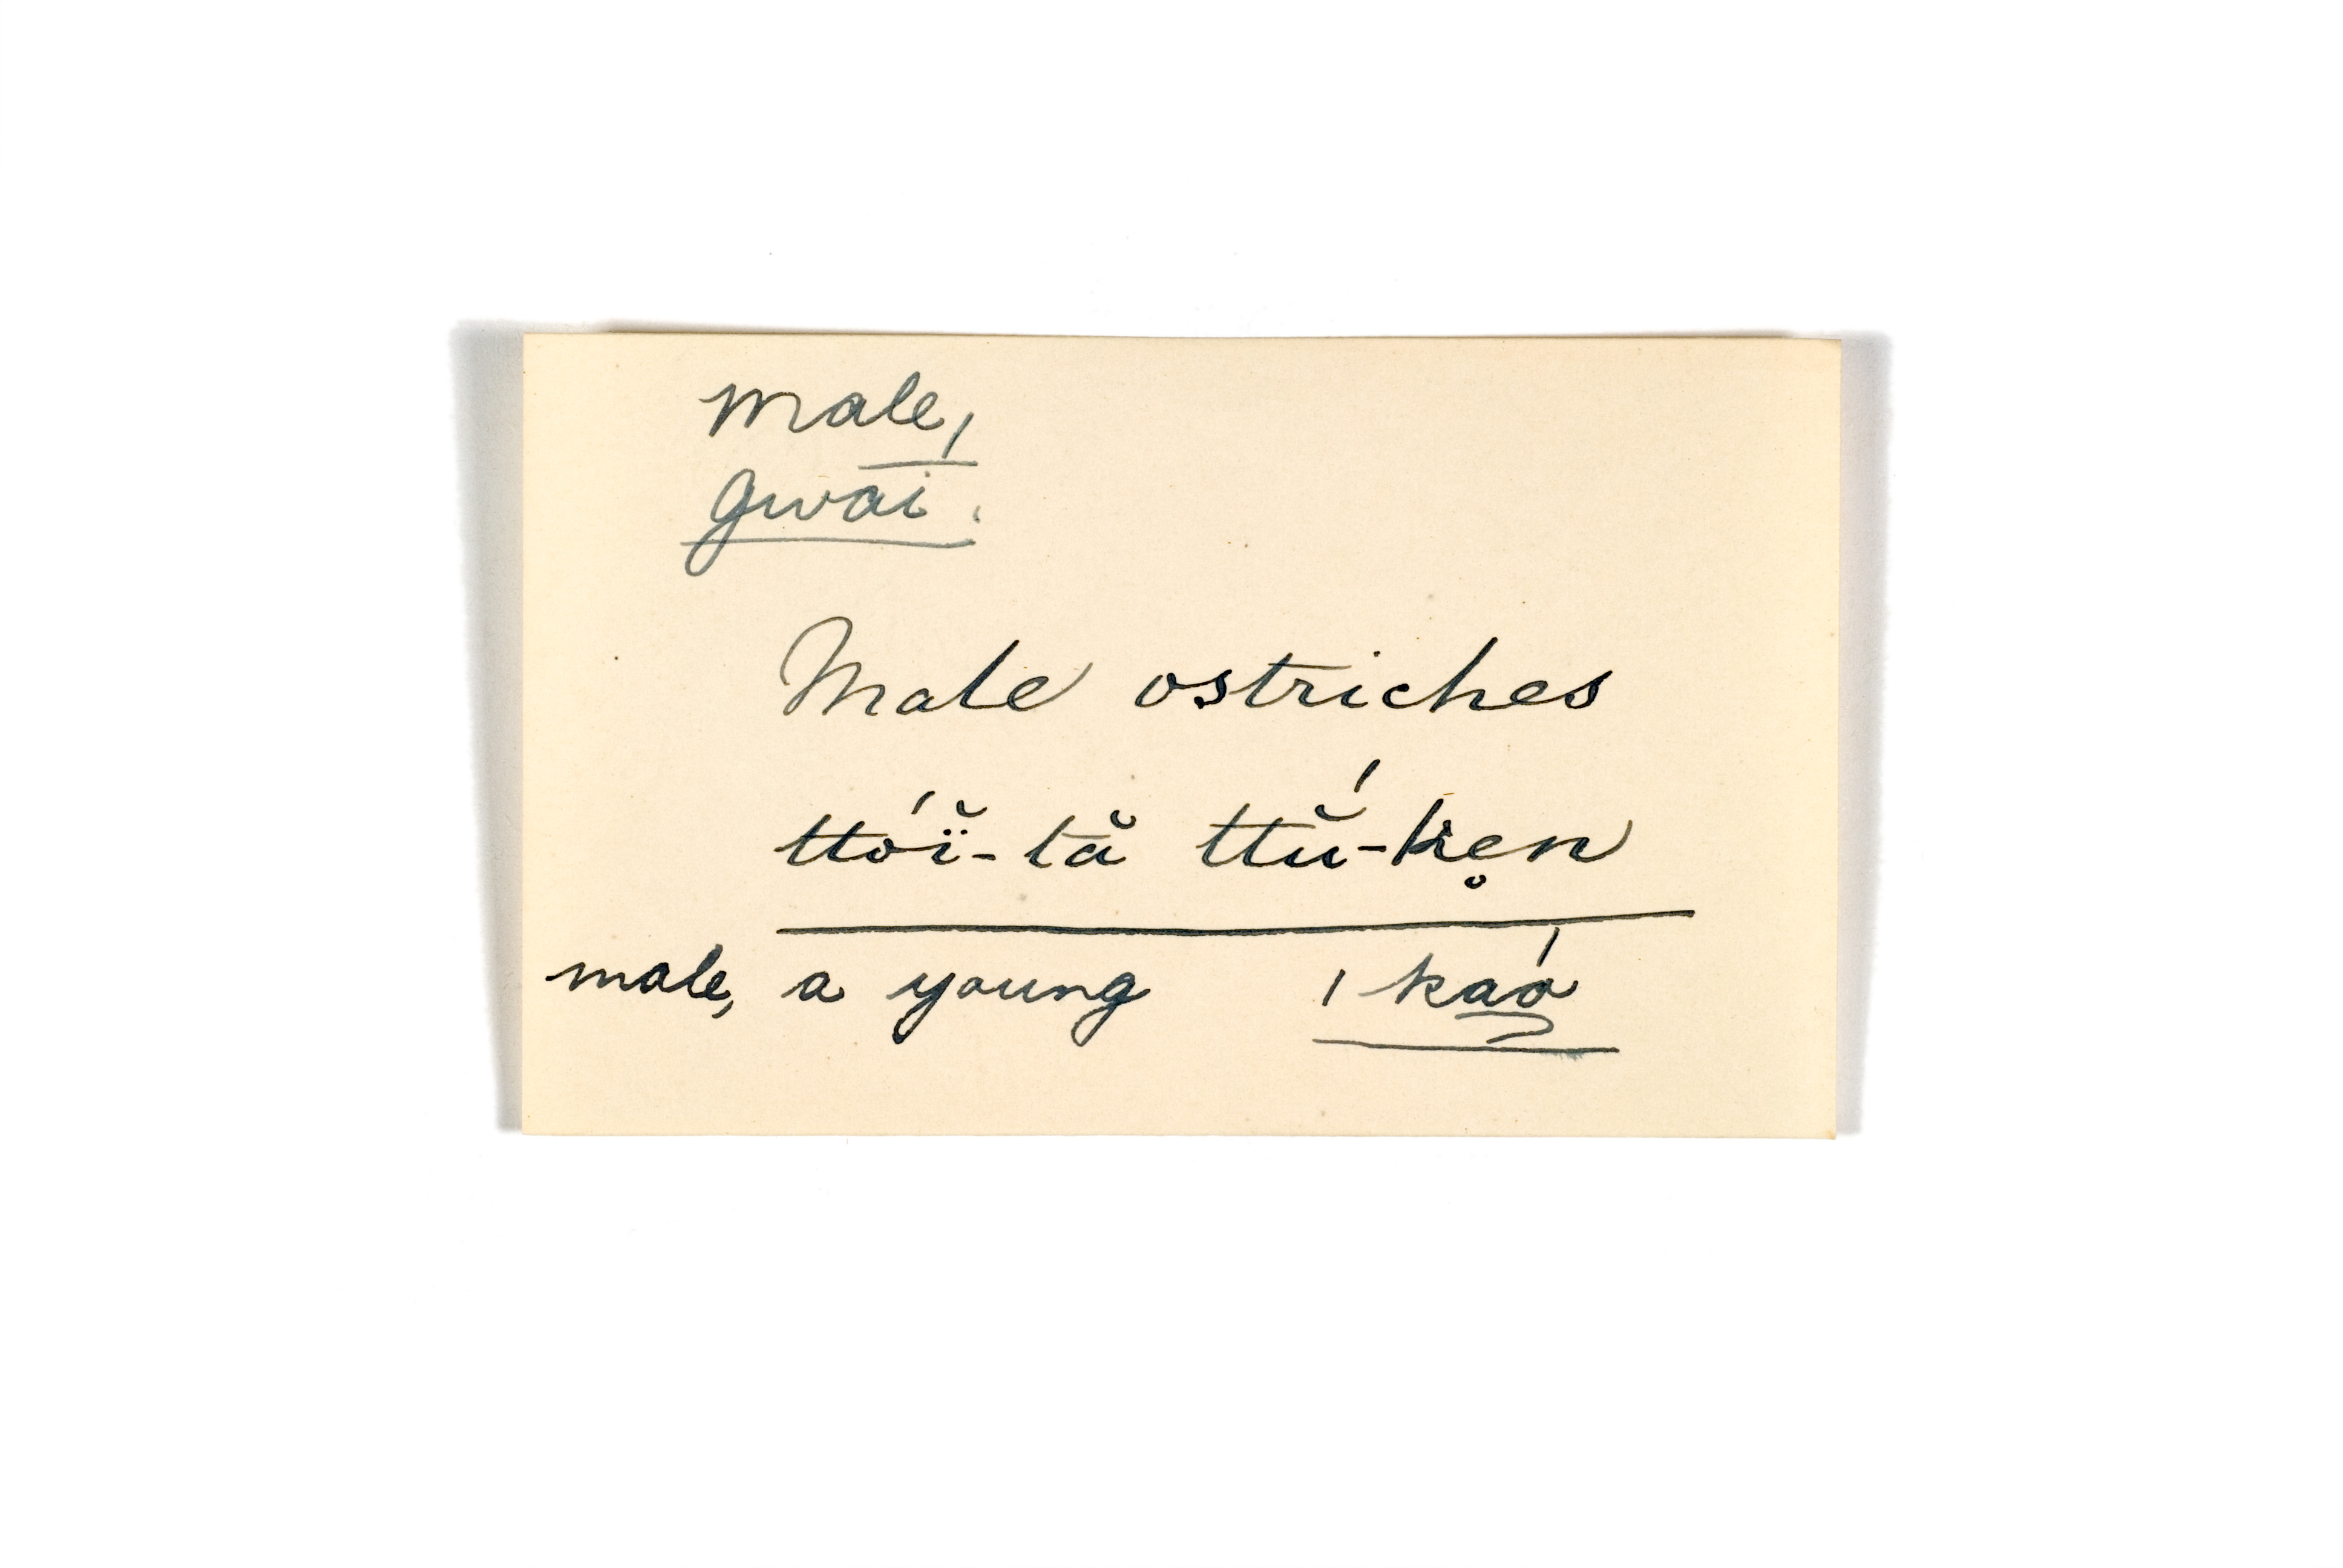 male,
gwai.
Male ostriches
ttóï̆-tă ttŭ́-ken̥
male, a young ǀkaó